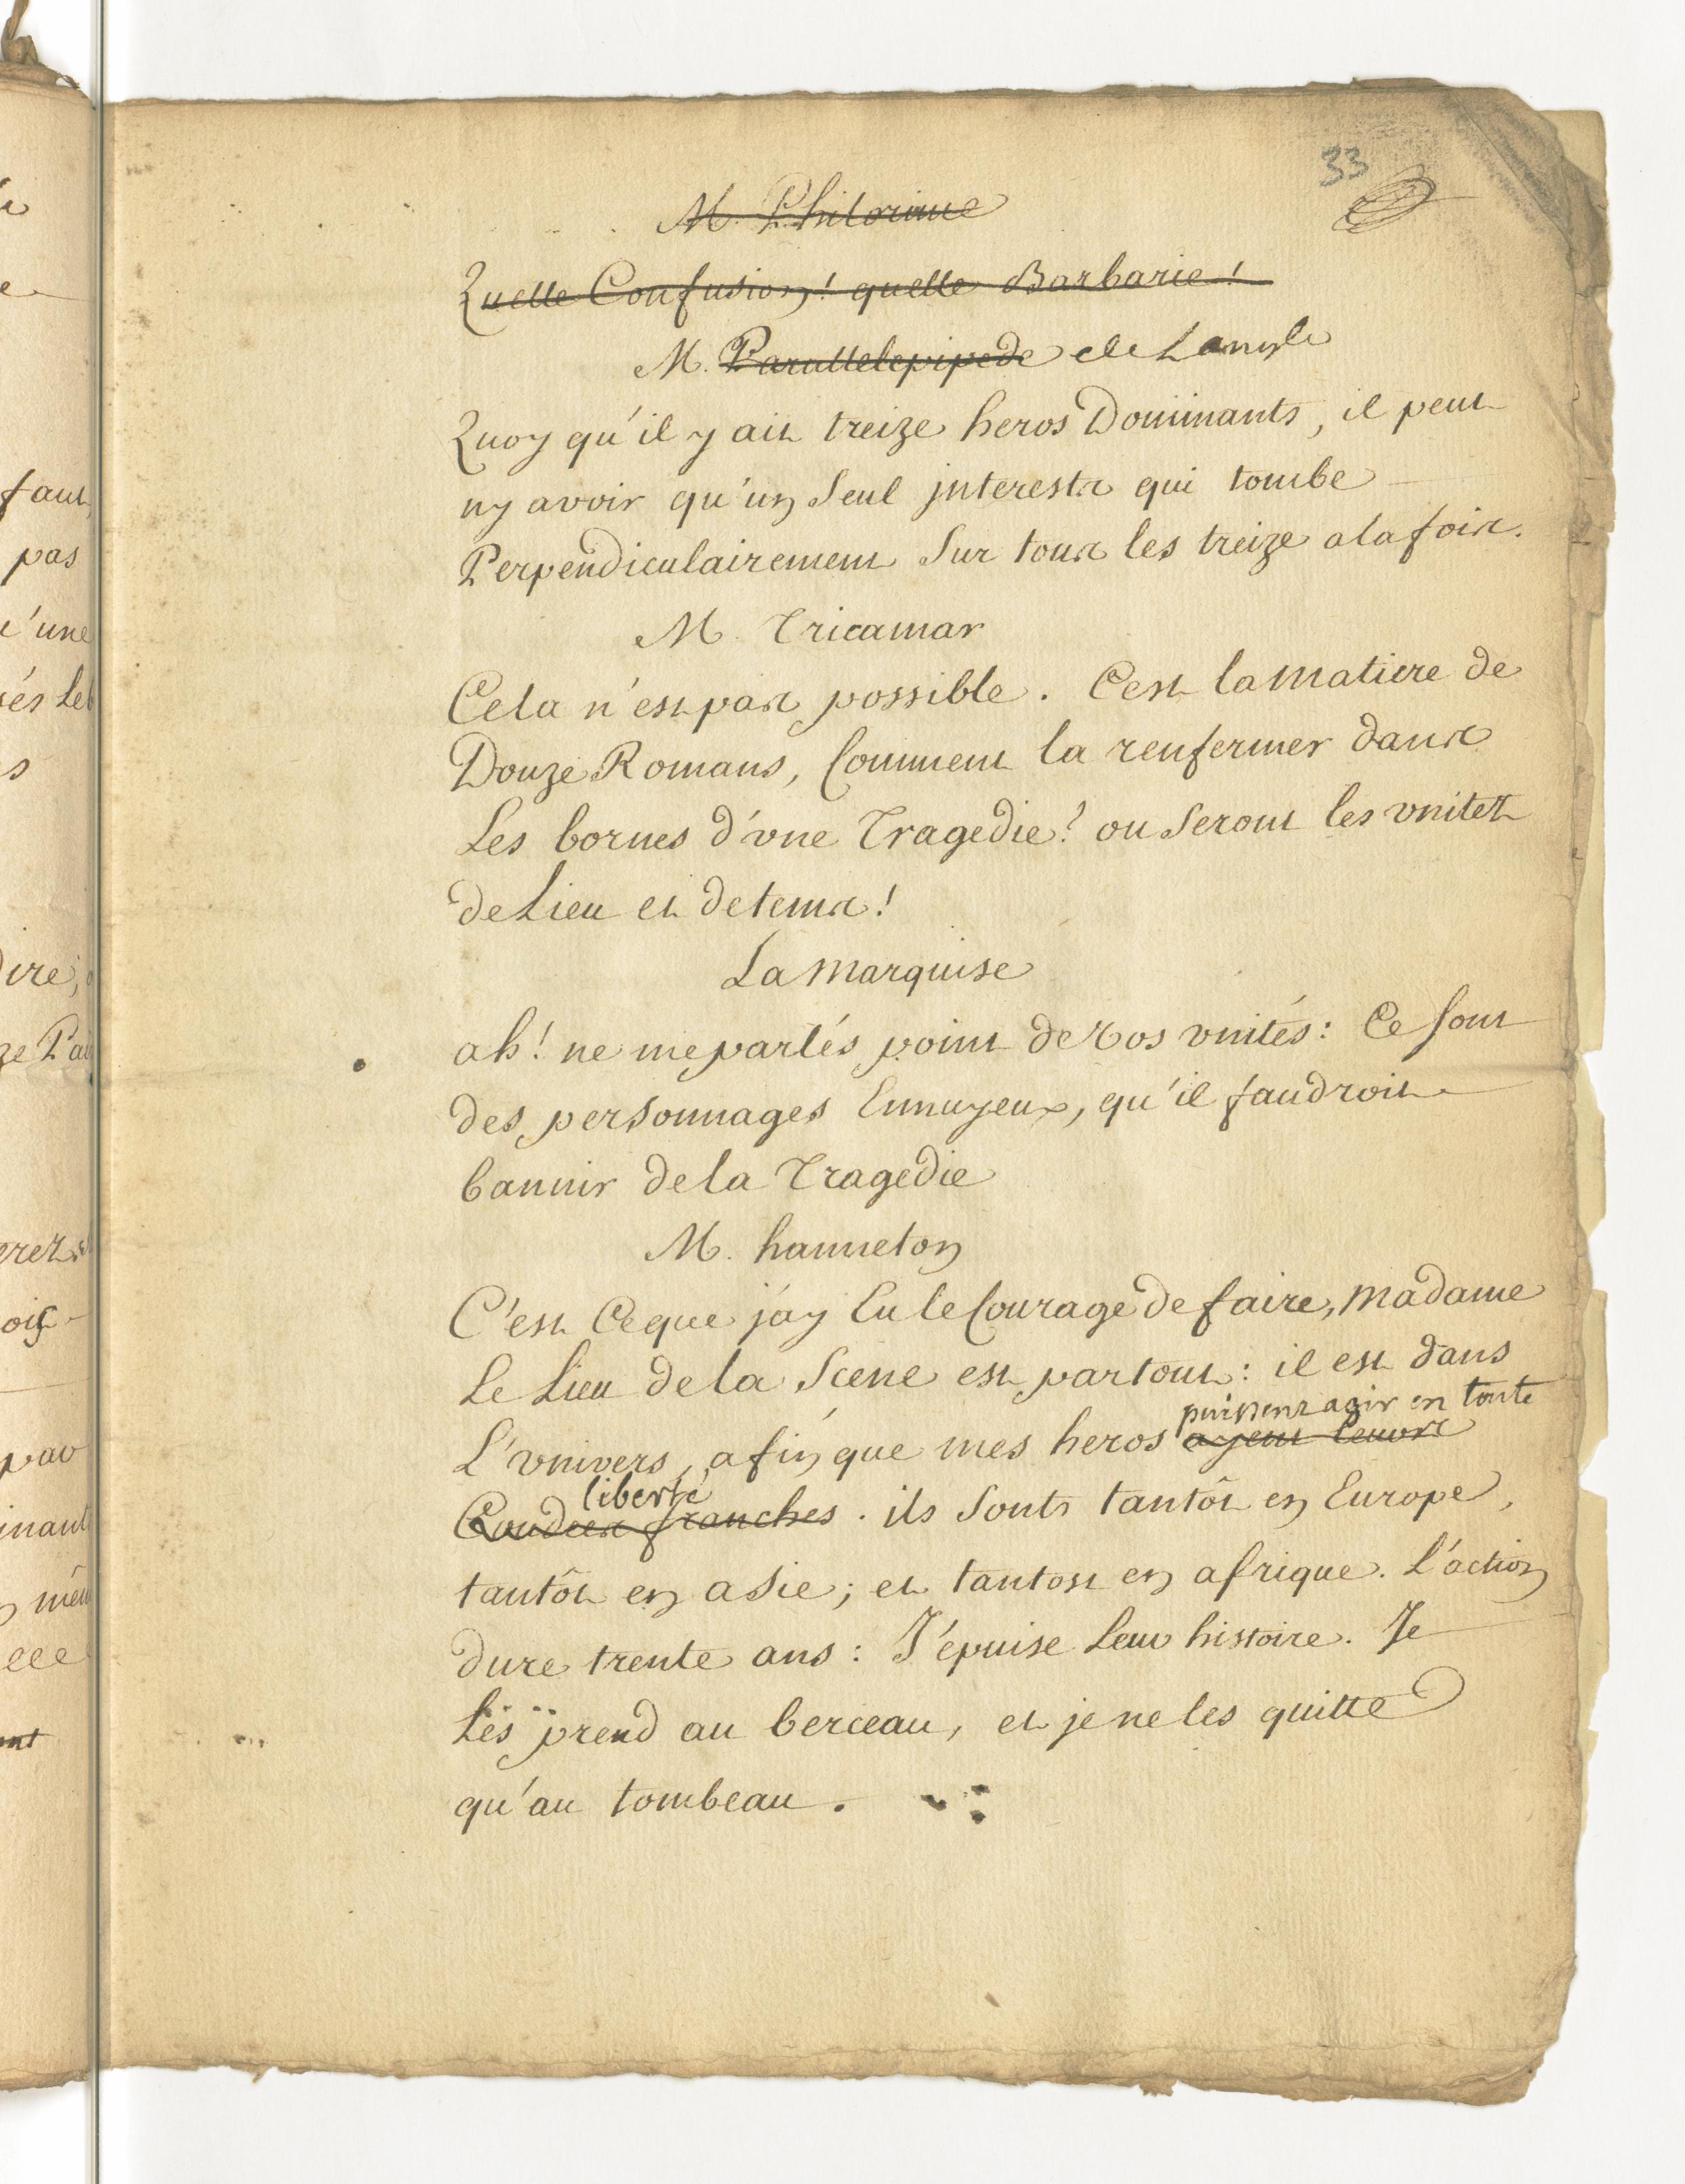 33
M. Philorime
Quelle Confusion! quelle Barbarie!
M. Parallelepipede de Langle
Quoy qu'il y ait treize heros Dominants, il peut
ny avoir qu'un Seul jnterests qui tombe
Perpendiculairement Sur tous les treize alafois.
M. Tricamar
Cela n'est pas possible. Cest la matiere de
Douze Romans, Comment la renfermer dans
Les bornes d'vne Tragedie? ou Seront les vnitez
de Lieu et detems!
La marquise
ah! ne me parlés point de vos vnités: Ce sont
des personnages Ennuyeux, qu'il faudroit
bannir de la Tragedie
M. hanneton
C'est Ceque j'ay Eu le Courage de faire, madame
Le Lieu de la Scene est partout: il est dans
puissent agir en toute
L'vnivers, afin que mes heros ayent leurs
liberté
Coudées franches. ils Sonts tantôt en Europe,
tantôt en asie; et tantost en afrique. L'action
dure trente ans: J'épuise Leur histoire. Je
Les prend au berceau, et je ne les quitte
qu'au tombeau.
faut
pas
'une
Let
ire,
ze Pai
pav
inant
mêm